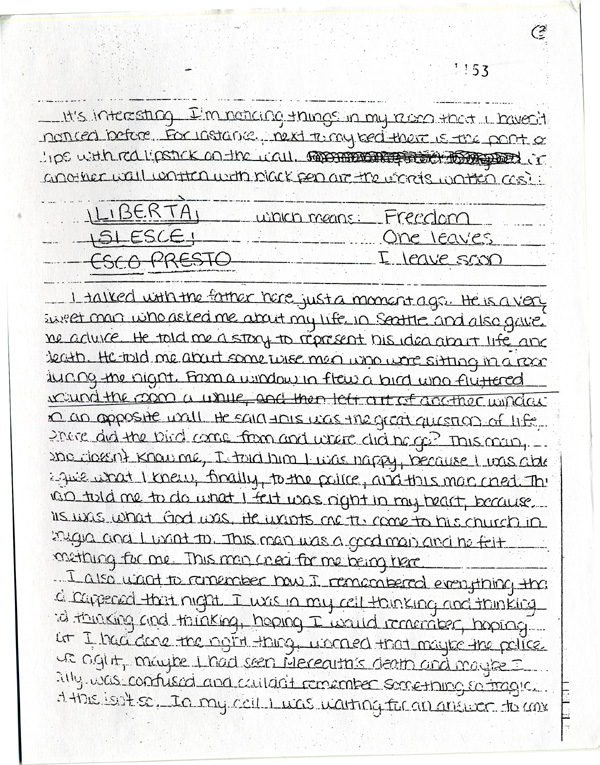 2
1153
It's interesting. I'm noticing things in my room that I haven't
noticed before. For instance, next to my bed there is the print o
lips with red lipstick on the wall. in
another wall written with black pen are the words written così:
LIBERTÀ which means: Freedom
SI ESCE One leaves
ESCO PRESTO I leave soon
I talked with the father here just a moment ago. He is a very
sweet man who asked me about my life in Seattle and also gave
me advice. He told me a story to represent his idea about life and
death. He told me about some wise men who were sitting in a room
during the night. From a window in flew a bird who fluttered
around the room a while, and then left out of another window
on an opposite wall. He said this was the great question of life.
where did the bird come from and where did he go? This man,
who doesn't know me, I told him I was happy, because I was able
give what I knew, finally, to the police, and this man cried. Thi
an told me to do what I felt was right in my heart, because
is was what God was. He wants me to come to his church in
erugia and I want to. This man was a good man and he felt
mething for me. This man cried for me being here
I also want to remember how I remembered everything tha
d happened that night. I was in my cell thinking and thinking
nd thinking and thinking, hoping I would remember, hoping
at I had done the right thing, worried that maybe the police
re right, maybe I had seen Meredith's death and maybe I
lly was confused and couldn't remember something so tragic.
t this isn't so. In my cell I was waiting for an answer to com